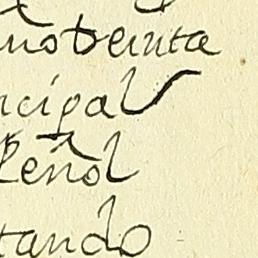 no treinta
ncipal
Peñol
tando